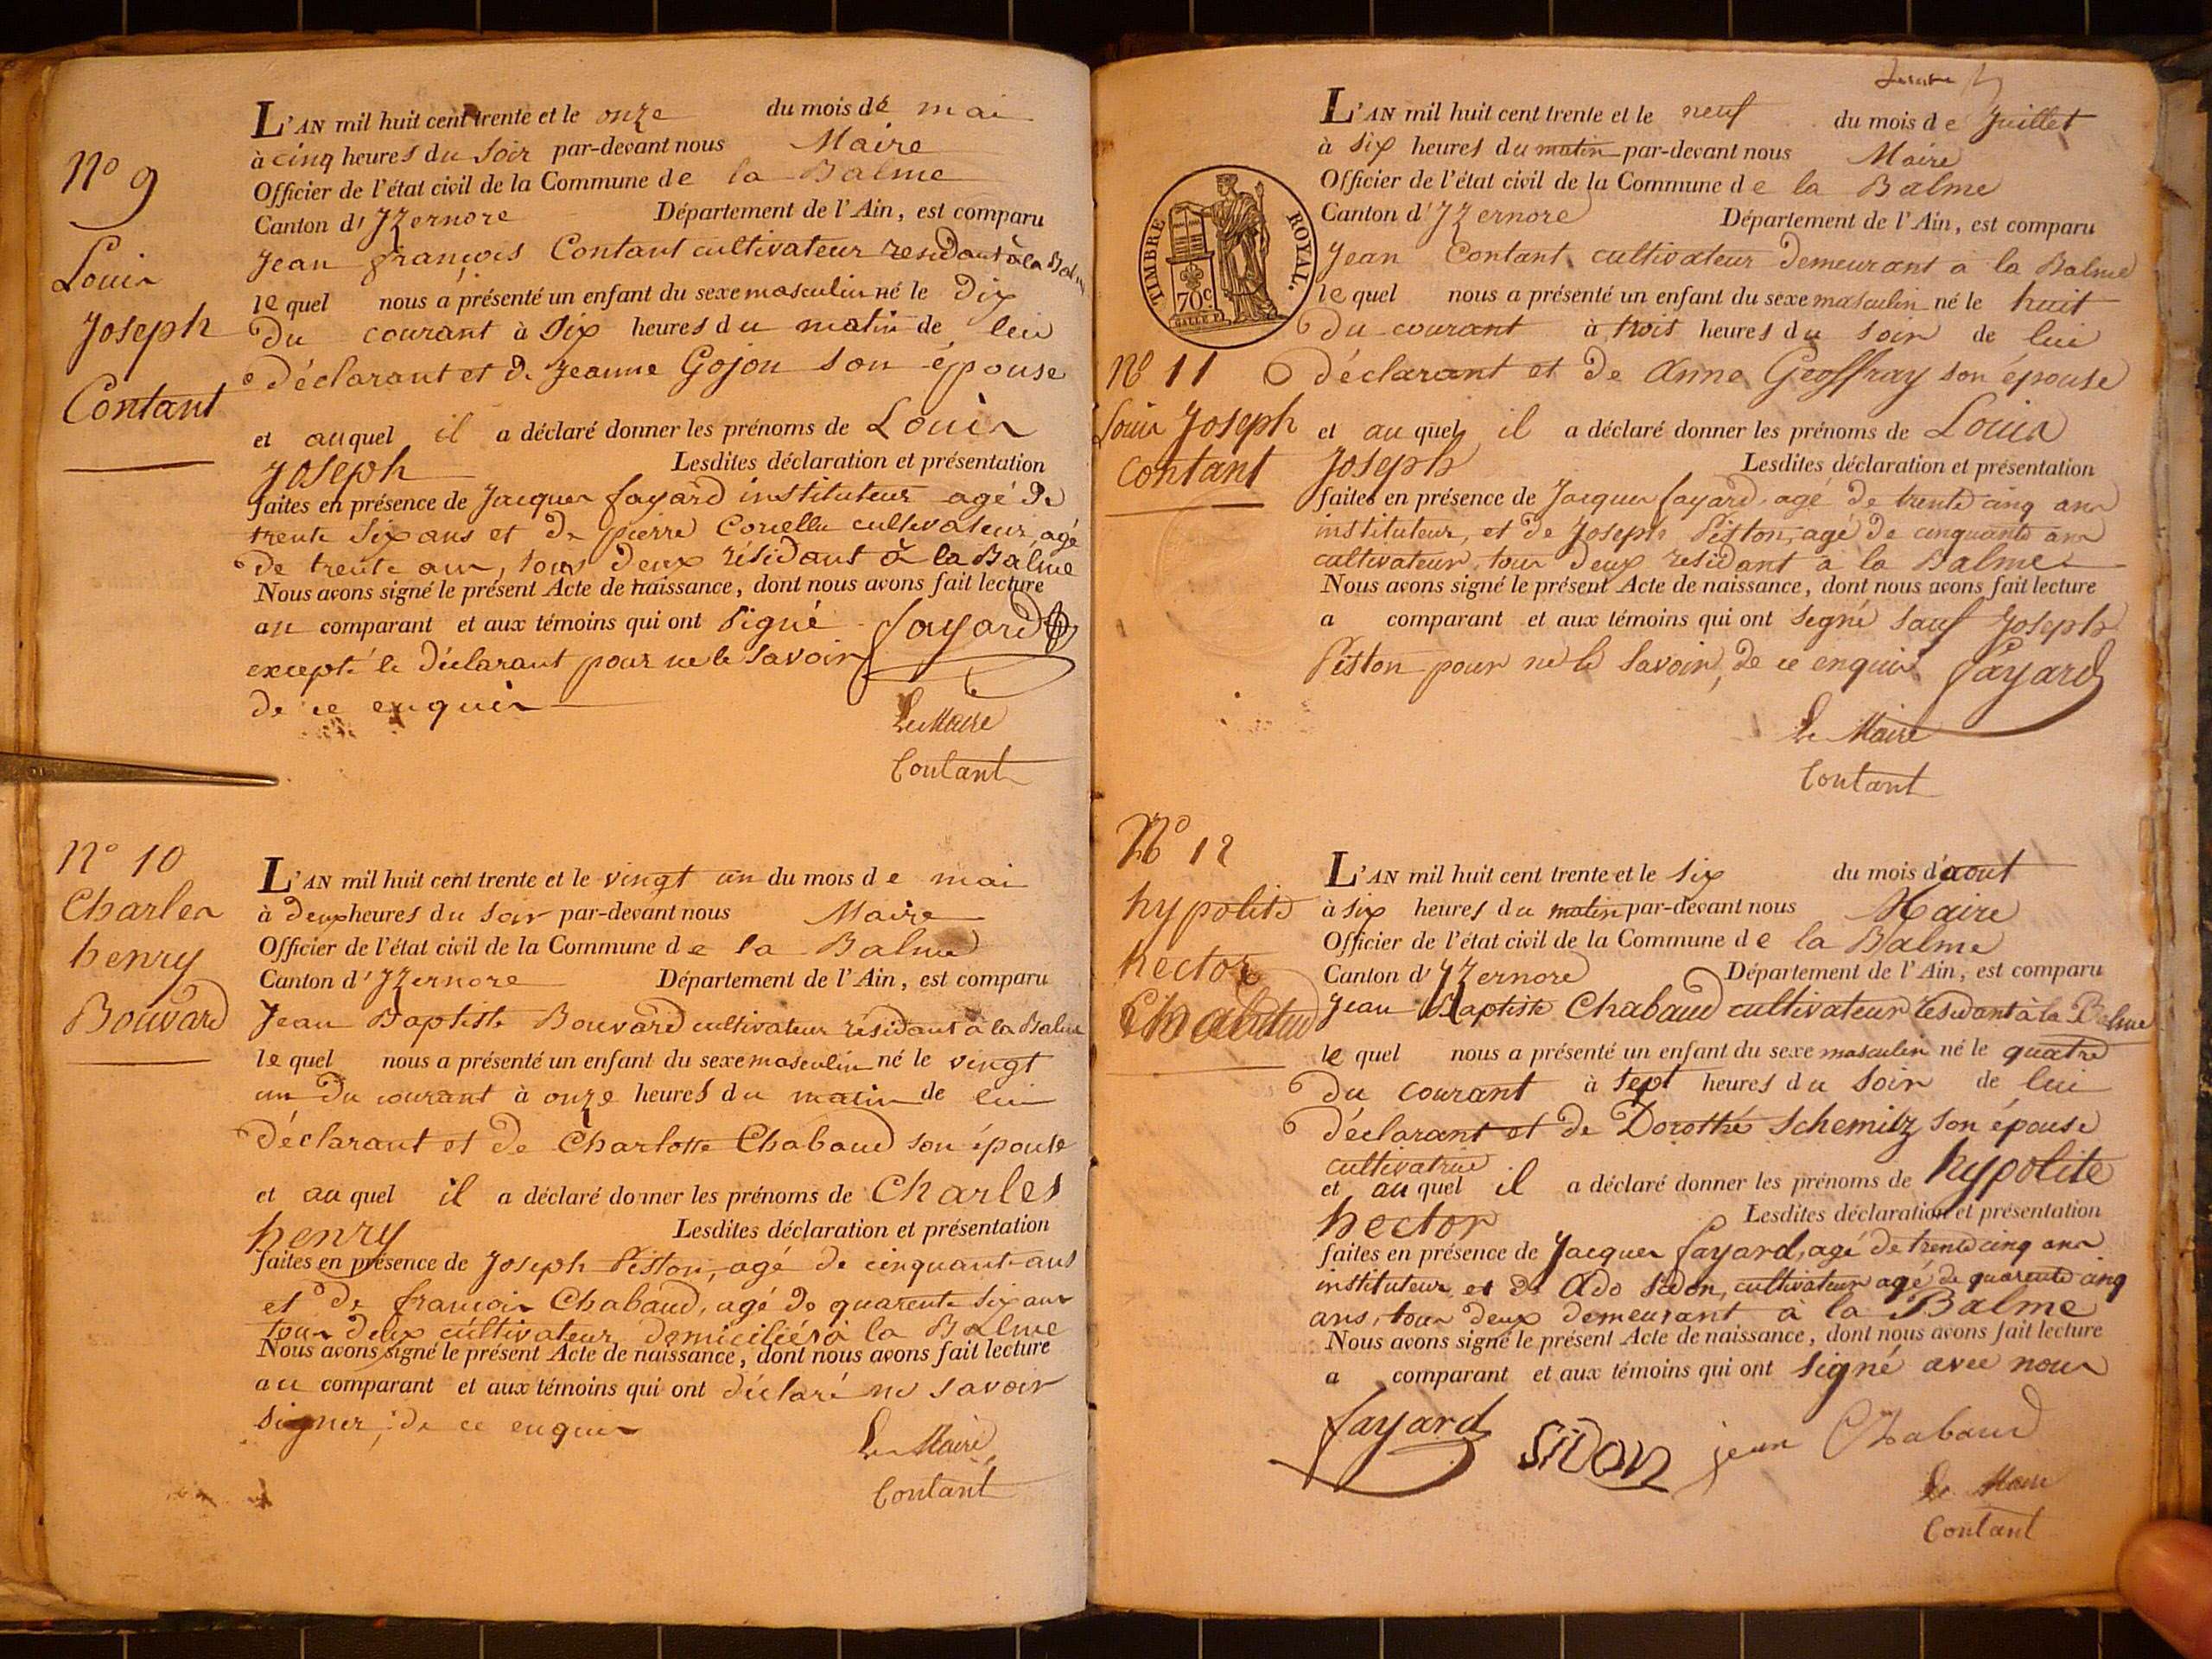 No 9
Louis
Joseph
Contant
L'AN mil huit cent trente et le onze du mois de mai
à cinq heures du soir par-devant nous Maire
Officier de l'état civil de la Commune de la Balme
Canton d'Izernore Département de l'Ain, est comparu
Jean françois Contant cultivateur residant à la Balme
le quel nous a présenté un enfant du sexe masculin né le dix
du courant à six heures du matin de lui
déclarant et de Jeanne Gojon son épouse
et au quel il a déclaré donner les prénoms de Louis
Joseph Lesdites déclaration et présentation
faites en présence de Jacques fayard instituteur agé de
trente six ans et de pierre cultivateur agé
de trente ans, tous deux résidant à la Balme
Nous avons signé le présent Acte de naissance, dont nous avons fait lecture
au comparant et aux témoins qui ont signé fayard
excepté le déclarant pour ne le savoir
de ce enquis
Le Maire
Contant
No 10
Charles
henry
Bouvard
L'AN mil huit cent trente et le vingt un du mois de mai
à deux heures du soir par-devant nous Maire
Officier de l'état civil de la Commune de la Balme
Canton d'Izernore Département de l'Ain, est comparu
Jean Baptiste Bouvard cultivateur résidant à la Balme
le quel nous a présenté un enfant du sexe masculin né le vingt
un du courant à onze heures du matin de lui
déclarant et de Charlotte Chabaud son épouse
et au quel il a déclaré donner les prénoms de Charles
henry Lesdites déclaration et présentation
faites en présence de Joseph Piston, agé de cinquante ans
et de francois Chabaud, agé de quarente six ans
tous deux cultivateur domiciliés à la Balme
Nous avons signé le présent Acte de naissance, dont nous avons fait lecture
au comparant et aux témoins qui ont déclaré ne savoir
signer, de ce enquis
Le Maire
Contant
TIMBRE ROYAL.
70c
No 11
Louis Joseph
Contant
L'AN mil huit cent trente et le neuf du mois de Juillet
à six heures du matin par-devant nous Maire
Officier de l'état civil de la Commune de la Balme
Canton d'Izernore Département de l'Ain, est comparu
Jean Contant cultivateur demeurant a la Balme
le quel nous a présenté un enfant du sexe masculin né le huit
du courant à trois heures du soir de lui
déclarant et de Anne Geoffray son épouse
et au quel il a déclaré donner les prénoms de Louis
Joseph Lesdites déclaration et présentation
faites en présence de Jacques fayard, agé de trente cinq ans
instituteur, et de Joseph Piston, agé de cinquante ans
cultivateur, tous deux residant a la Balme
Nous avons signé le présent Acte de naissance, dont nous avons fait lecture
a comparant et aux témoins qui ont signé sauf Joseph
Piston pour ne le savoir, de ce enquis fayard
Le Maire
Contant
No 12
hypolite
hector
Chabaud
L'AN mil huit cent trente et le six du mois d'aout
à six heures du matin par-devant nous Maire
Officier de l'état civil de la Commune de la Balme
Canton d'Izernore Département de l'Ain, est comparu
Jean Baptiste Chabaud cultivateur résidant à la Balme
le quel nous a présenté un enfant du sexe masculin né le quatre
du courant à sept heures du soir de lui
déclarant et de Dorothé Schemitz son épouse
cultivatrice
et au quel il a déclaré donner les prénoms de hypolite
hector Lesdites déclaration et présentation
faites en présence de Jacques fayard, agé de trente cinq ans
instituteur et de Ado Sidon, cultivateur agé de quarente cinq
ans, tous deux demeurant a la Balme
Nous avons signé le présent Acte de naissance, dont nous avons fait lecture
a comparant et aux témoins qui ont signé avec nous
fayard SIDON jean Chabaud
Le Maire
Contant